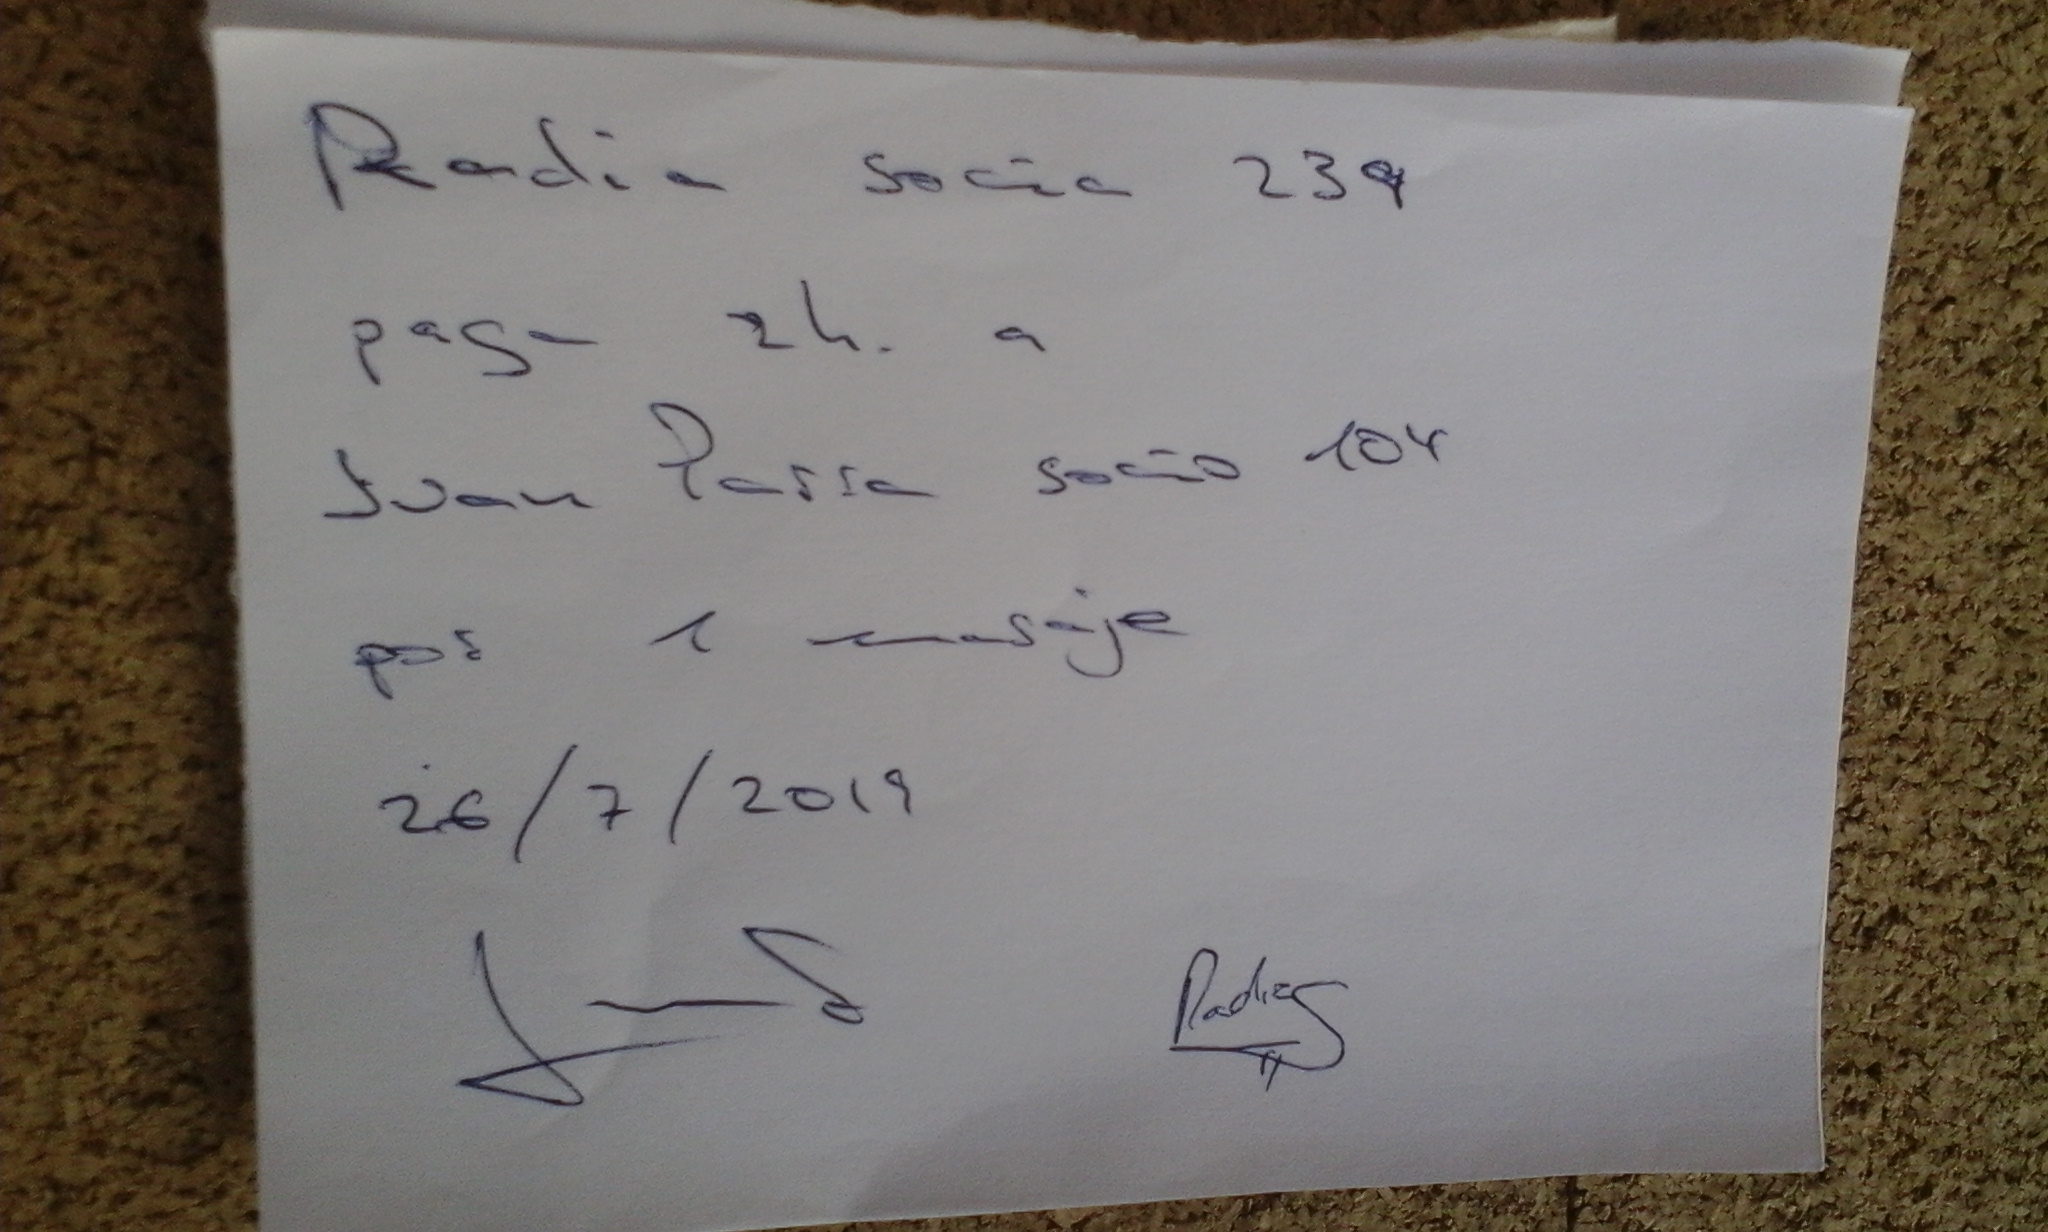 Radia socia 239
paga 2h. a
Juan Plassa socio 104
por 1 masaje
26/7/2019
Radia